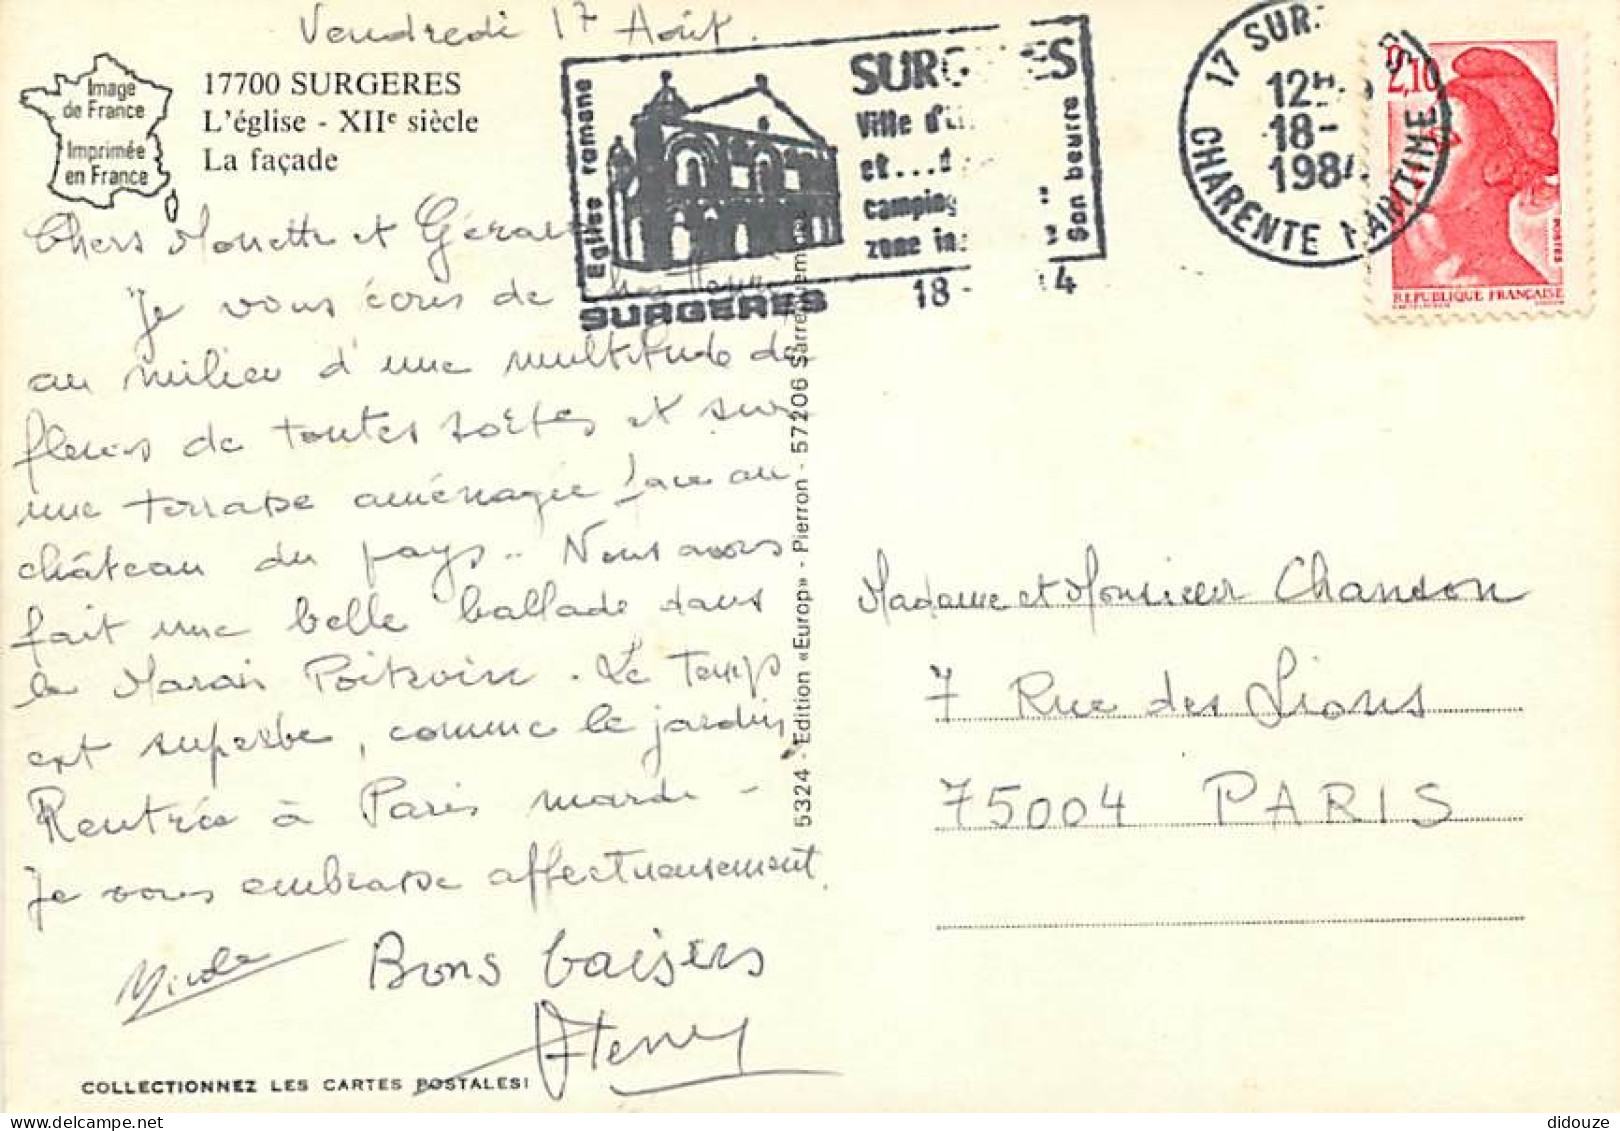 Vendredi 17 Août.
Image
de France
Imprimée
en France
17700 SURGERES
L'église - XIIe siècle
La façade
Eglise romane
SURGERES
SUR ES
Ville d'
et...d
camping
zone in
Son beurre
18 - 4
17 SUR
12H
18 -
1984
CHARENTE MARITIME
2,10
POSTES
REPUBLIQUE FRANÇAISE
Chers Monette et Géra
Je vous écris de
au milieu d'une multitude de
fleurs de toutes sortes et sur
une terrasse aménagée face au
château du pays.. Nous avons
fait une belle ballade dans
le Marais Poitevin. Le temps
est superbe, comme le jardin
Rentrée à Paris mardi -
Je vous embrasse affectueusement.
Nicole
Bons baisers
COLLECTIONNEZ LES CARTES POSTALES!
5324 - Edition «Europ» - Pierron - 57206 Sarreguemines
Madame et Monsieur Chanson
7 Rue des Lions
75004 PARIS
didouze